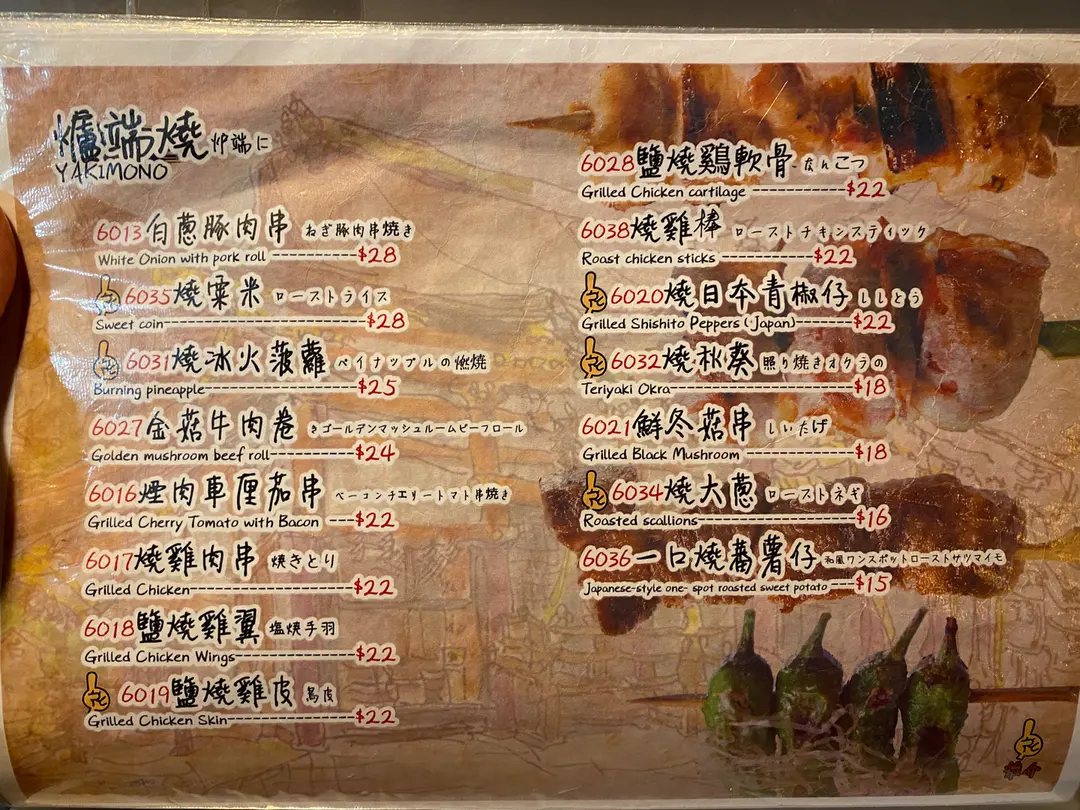 爐端燒 炉端に
YAKIMONO
6013 白蔥豚肉串 ねぎ豚肉串焼き
White Onion with pork roll ---------- $28
6035 燒粟米 ローストライス
Sweet coin ---------- $28
6031 燒冰火菠蘿 ペイナップルの燃焼
Burning pineapple ---------- $25
6027 金菇牛肉卷 きゴールデンマッシュルームビーフロール
Golden mushroom beef roll ---------- $24
6016 煙肉車厘茄串 ベーコンチエリートマト串焼き
Grilled Cherry Tomato with Bacon --- $22
6017 燒雞肉串 焼きとり
Grilled Chicken ---------- $22
6018 鹽燒雞翼 塩焼手羽
Grilled Chicken Wings ---------- $22
6019 鹽燒雞皮 鳥皮
Grilled Chicken Skin ---------- $22
6028 鹽燒鷄軟骨 なんこつ
Grilled Chicken cartilage ---------- $22
6038 燒雞棒 ローストチキンスティック
Roast chicken sticks ---------- $22
6020 燒日本青椒仔 ししとう
Grilled Shishito Peppers (Japan) ------ $22
6032 燒秋葵 照り焼きオクラの
Teriyaki Okra ---------- $18
6021 鮮冬菇串 しいたけ
Grilled Black Mushroom ---------- $18
6034 燒大蔥 ローストネギ
Roasted scallions ---------- $16
6036 一口燒蕃薯仔 和風ワンスポットローストサツマイモ
Japanese-style one- spot roasted sweet potato ---- $15
推介